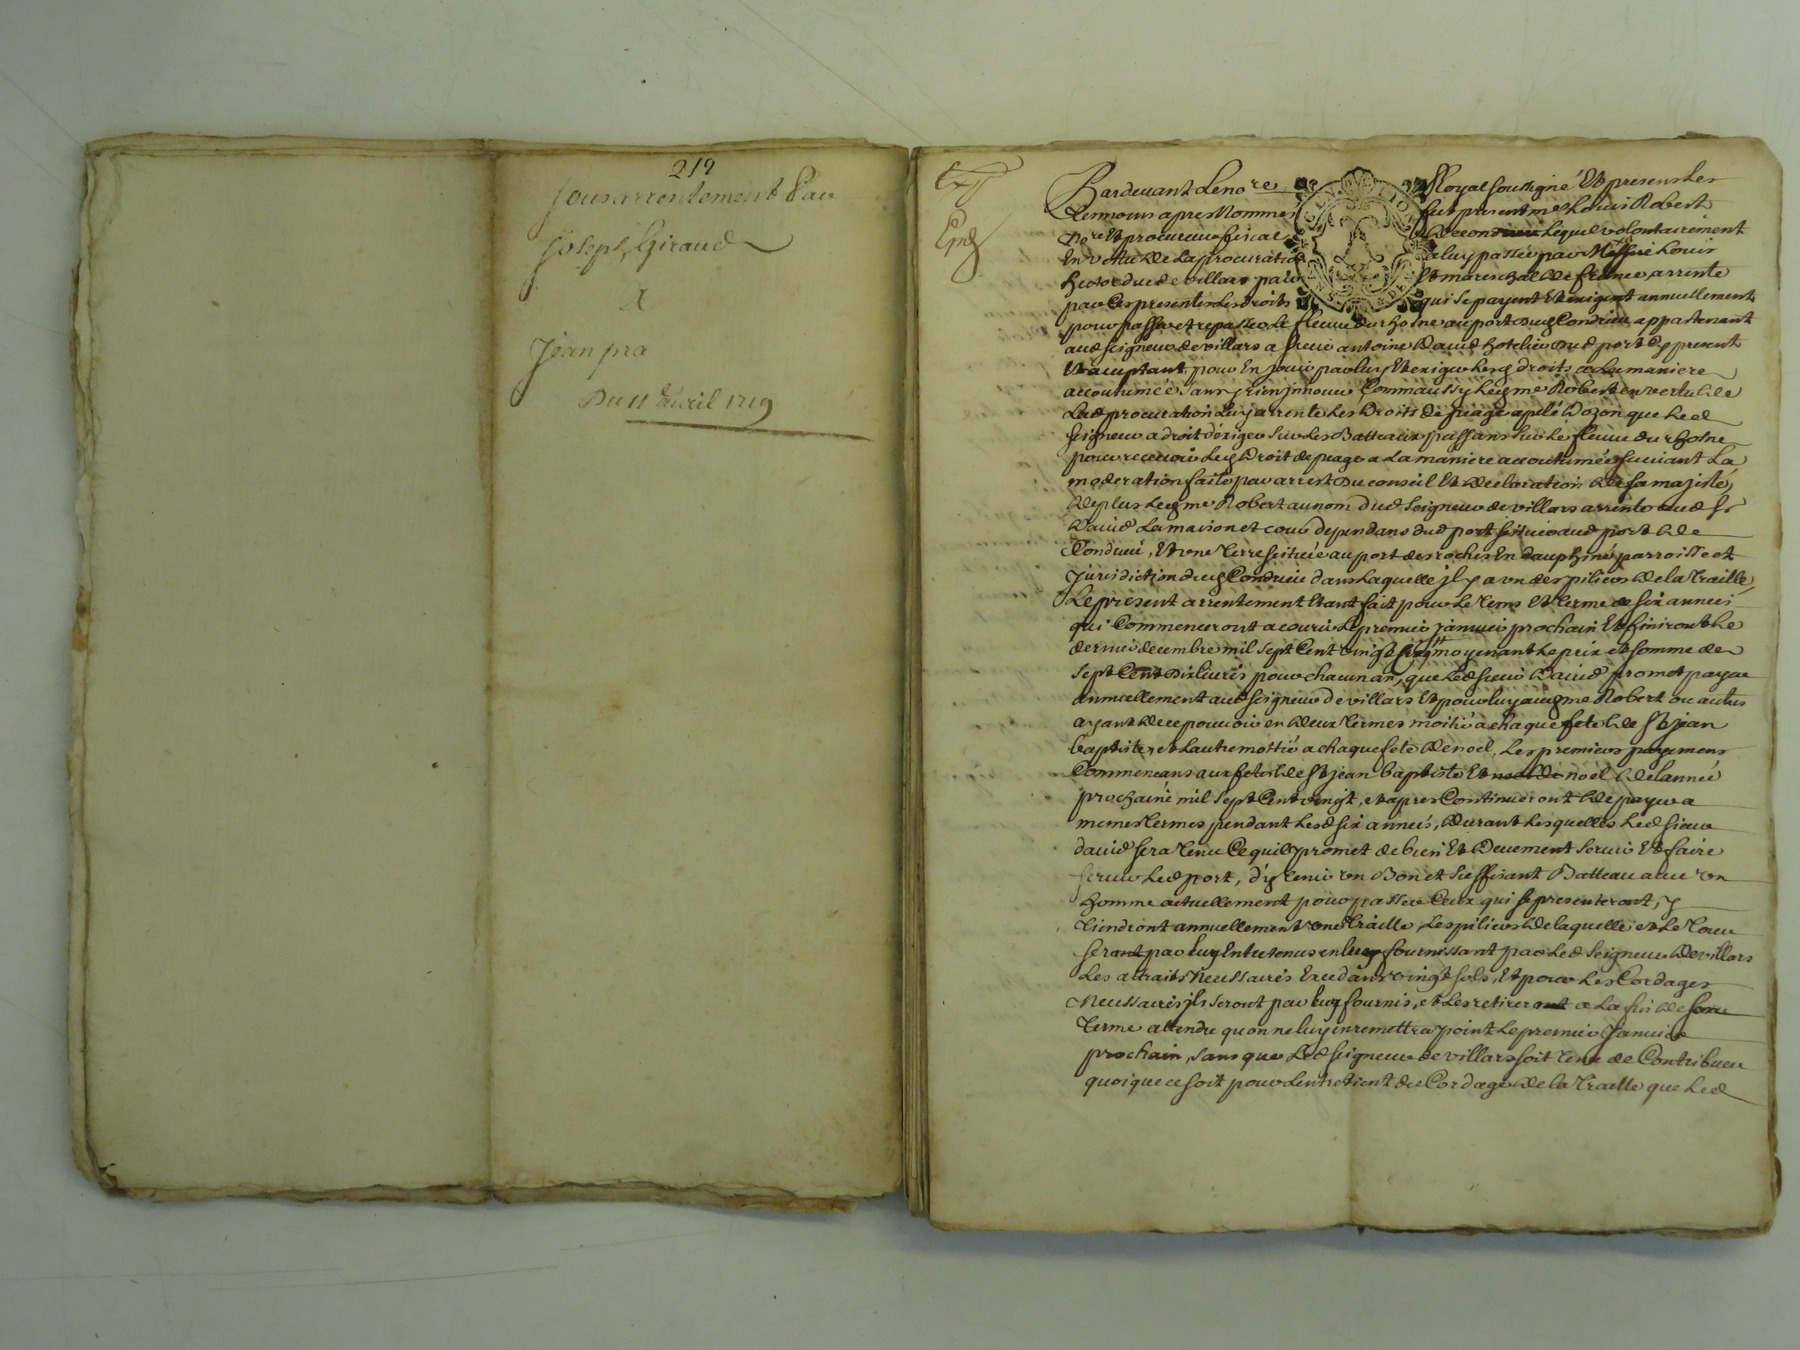 219
Sousarrentement Par
Joseph Giraud
A
Jean pra
Du 11 avril 1719
Exp
Pardevant Le no.re Royal soussigné Et presens Les
temoins apres Nommes fut present me Louis Robert
No.re Et procureur fiscal de Condrieu Lequel volontairement
En vertu de La procuration a luy passée par Messire Louis
hector duc de villars pair Et mareschal de france, arrente
par Ces presentes Les droits qui se payent Et exigent annuellement
pour passer et repasser Le fleuve du rhosne au port dud Condrieu appartenant
aud seigneur de villars a sieur antoine David hotelier dud port Icy present
Et acceptant pour En jouir par luy Et exiger lesd droits a La maniere
accoutumée sans y rien jnnover Comm aussy Led me Robert en vertu de
Lad procuration Luy arrente Les Droits de peage apelé Dozon que Led
seigneur a droit d'exiger sur Les Batteaux passans sur Le fleuve du rhosne
pour recevoir Led Droit de peage a La maniere accoutumée suivant La
moderation faite par arrest Du conseil Et declaration de sa majesté,
De plus Led me Robert au nom dud seigneur de villars arrente aud sr
David La maison et cour dependans dud port scituée aud port de
Condrieu, Et une terre scituée au port des roches En dauphiné parroisse et
Jurisdiction dud Condrieu dans Laquelle jl y a un des piliers de la traille,
Le present arrentement Etant fait pour Le tems Et terme de six années
qui Commenceront a courir Le premier janvier prochain Et finiront Le
dernier decembre mil sept Cent vingt cinq moyenant Le prix et somme de
sept Cent dix livres pour chacun an, que Led sieur David promet payer
annuellement aud seigneur de villars Et pour luy aud me Robert ou autres
ayant de ce pouvoir en deux termes moitié a chaque fete de St jean
baptiste et Lautre moitié a chaque fete de noel, Les premiers payemens
Commencans aux fetes de St jean baptiste Et noel de Lannée
prochaine mil sept Cent vingt, et apres Continueront de payer a
memes termes pendant Lesd six années, durant Lesquelles Led sieur
david sera tenu Ce quil promet de bien Et Deuement servir Et faire
servir Led port, d'y tenir un Bon et suffisant Batteau avec un
homme actuellement pour passer Ceux qui se presenteront, y
tiendront annuellement une traille, Les piliers de laquelle et Le tour
seront par luy Entretenus en luy fournissant par Led seigneur de villars
Les attraits Neussaires Excedans vingt sols, Et pour Les Cordages
Neussaires jls seront par luy fournis, et Les retireront a La fin de son
terme attendu quon ne luy en remettra point Le premier Janvier
prochain, sans que Led seigneur de villars soit tenu de Contribuer
quoique ce soit pour Lentretient du Cordage de la traille que Led